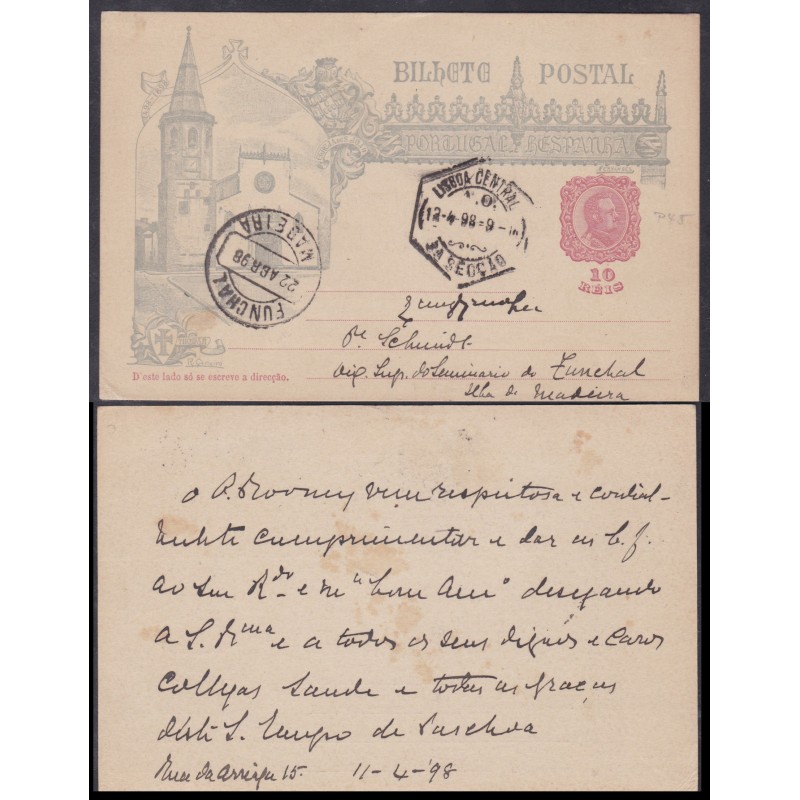 BILHETE POSTAL
PORTUGAL HESPANHA
LISBOA CENTRAL
12-4-98-9
SECÇÃO
10
RÉIS
P45
FUNCHAL
22 ABR 98
MADEIRA
Pe Schmidt
Dig. Sup. do Seminario do Funchal
Ilha da Madeira
D'este lado só se escreve a direcção.
O P. Rooney vem respeitosa e cordial-
mente cumprimentar e dar as b. f.
ao seu Rdo e m "bom Am" desejando
a S. Rma e a todos os seus dignos e caros
collegas saude e todas as graças
d'este S. Tempo de Paschoa
Rua da Arriaga 15. 11-4-'98